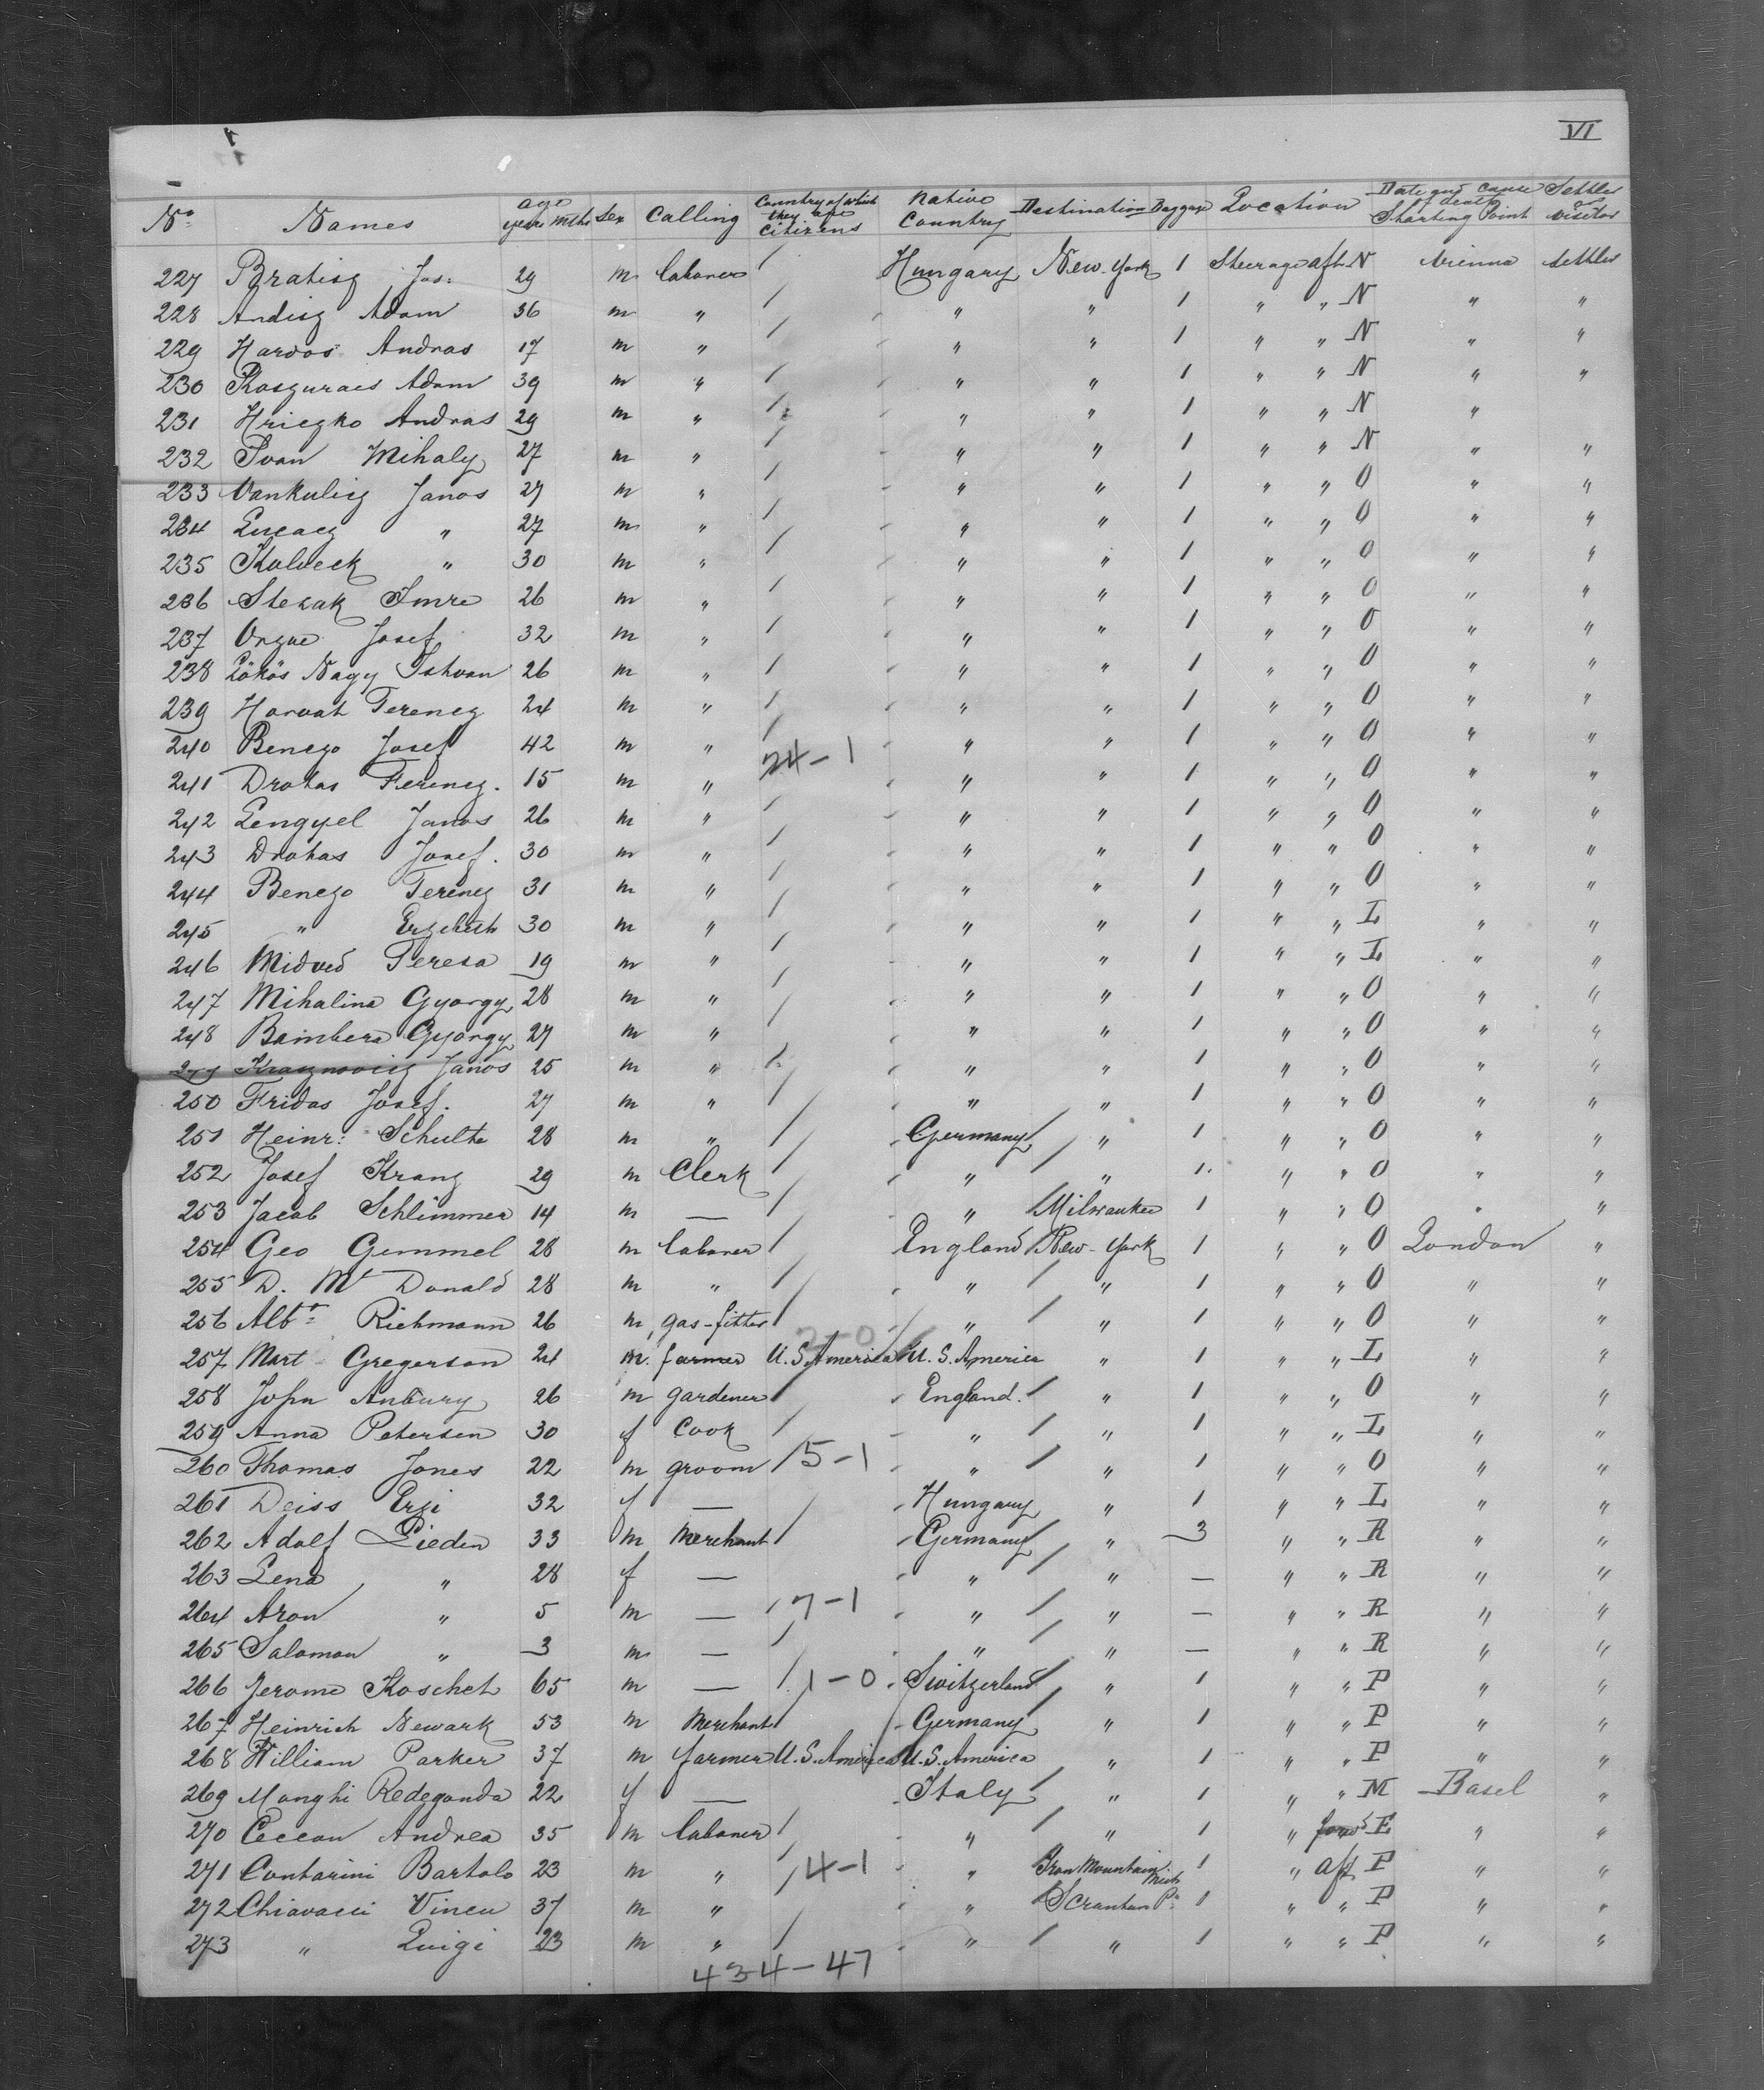 VI
No. Names age years mths Sex Calling Country of which they are Citizens Native Country Destination Baggage Location Date and cause of death Starting Point Settler or visitor
227 Bratisz Jos: 29 m laborer / Hungary New-York 1 Steerage aft N Vienna settler
228 Andisz Adam 36 m " / " " 1 " " N " "
229 Hardos Andras 17 m " / " " 1 " " N " "
230 Adam 39 m " / " " 1 " " N " "
231 Andras 29 m " / " " 1 " " N "
232 Ivan Mihaly 27 m " / " " 1 " " N " "
233 Vankulicz Janos 27 m " / " " 1 " " O " "
234 " 27 m " / " " 1 " " O " "
235 Kolveck " 30 m " / " " 1 " " O " "
236 Stezak Imre 26 m " / " " 1 " " O " "
237 Josef 32 m " / " " 1 " " O " "
238 Nagy Istvan 26 m " / " " 1 " " O " "
239 Horvat Ferencz 24 m " / " " 1 " " O " "
240 Benczo Josef 42 m " / " " 1 " " O " "
241 Drotas Ferencz. 15 m " 24-1 " " 1 " " O " "
242 Lengyel Janos 26 m " / " " 1 " " O " "
243 Drotas Josef. 30 m " / " " 1 " " O " "
244 Benczo Ferencz 31 m " / " " 1 " " O " "
245 " Erzebeth 30 m " / " " 1 " " L " "
246 Midved Teresa 19 m " / " " 1 " " L " "
247 Mihalina Gyorgy 28 m " / " " 1 " " O " "
248 Bambera Gyorgy 27 m " / " " 1 " " O " "
249 Krasznovicz Janos 25 m " / " " 1 " " O " "
250 Fridas Josef. 27 m " / " " 1 " " O " "
251 Heinr: Schulte 28 m " / Germany " 1 " " O " "
252 Josef Kranz 29 m Clerk / " " 1 " " O " "
253 Jacob Schlimmer 14 m — / " Milwaukee 1 " " O " "
254 Geo Gemmel 28 m laborer / England New-York 1 " " O London "
255 D. Mc Donald 28 m " / " " 1 " " O " "
256 Albt Richmann 26 m gas-fitter / " " 1 " " O " "
257 Mart Gregerson 24 m. farmer U.S.America 2-0 U.S.America " 1 " " L " "
258 John Anbury 26 m gardener / England. " 1 " " O " "
259 Anna Petersen 30 f Cook / " " 1 " " L " "
260 Thomas Jones 22 m groom / 5-1 " " 1 " " O " "
261 Deiss Erzi 32 f — / Hungary " 1 " " L " "
262 Adolf Lieden 33 m Merchant / Germany " 3 " " R " "
263 Lena " 28 f — " " — " " R " "
264 Aron " 5 m — / 7-1 " " — " " R " "
265 Salomon " 3 m — / " " — " " R " "
266 Jerome Koschet 65 m — / 1-0 Switzerland " 1 " " P " "
267 Heinrich Newark 53 m Merchant / Germany " 1 " " P " "
268 William Parker 37 m farmer U.S.America U.S.America " 1 " " P " "
269 Manghi Redegonda 22 f — Italy " 1 " " M Basel "
270 Ceccon Andrea 35 m laborer / " " 1 " forwd E " "
271 Contarini Bartolo 23 m " / 4-1 " Iron Mountain Mich 1 " aft P " "
272 Chiavacci Vincu 37 m " " Scranton Pa 1 " " P " "
273 " Luigi 23 m " / " " 1 " " P " "
434-47